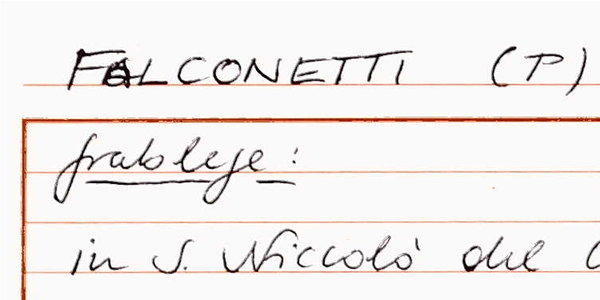 FALCONETTI (P)
grablege:
in S. Niccolò del